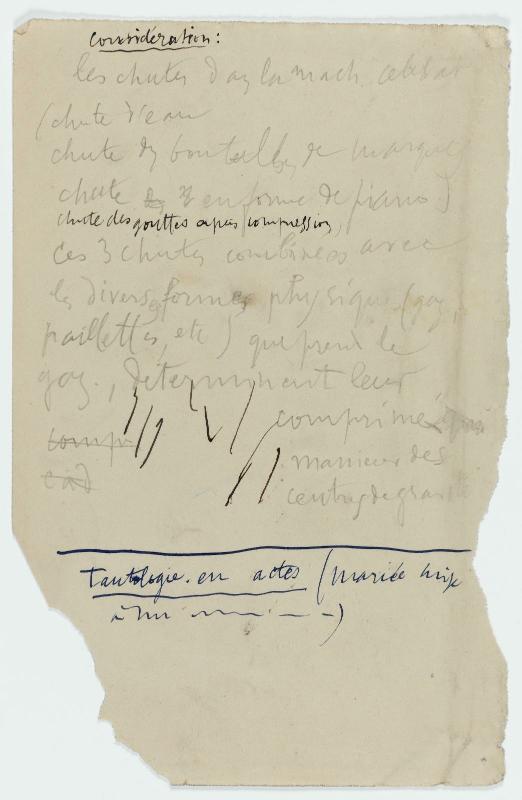 considération:
les chutes dans la mach. célibat
(chute d'eau
chute des bouteilles de marque
chute en forme de piano)
chute des gouttes après compression,
ces 3 chutes combinées avec
les diverses formes physiques (gaz,
paillettes, etc) que prend le
gaz., déterminent leur
comprimé
compr
maniement des
càd
centres de gravité
Tautologie. en actes (mariée mise
à nu